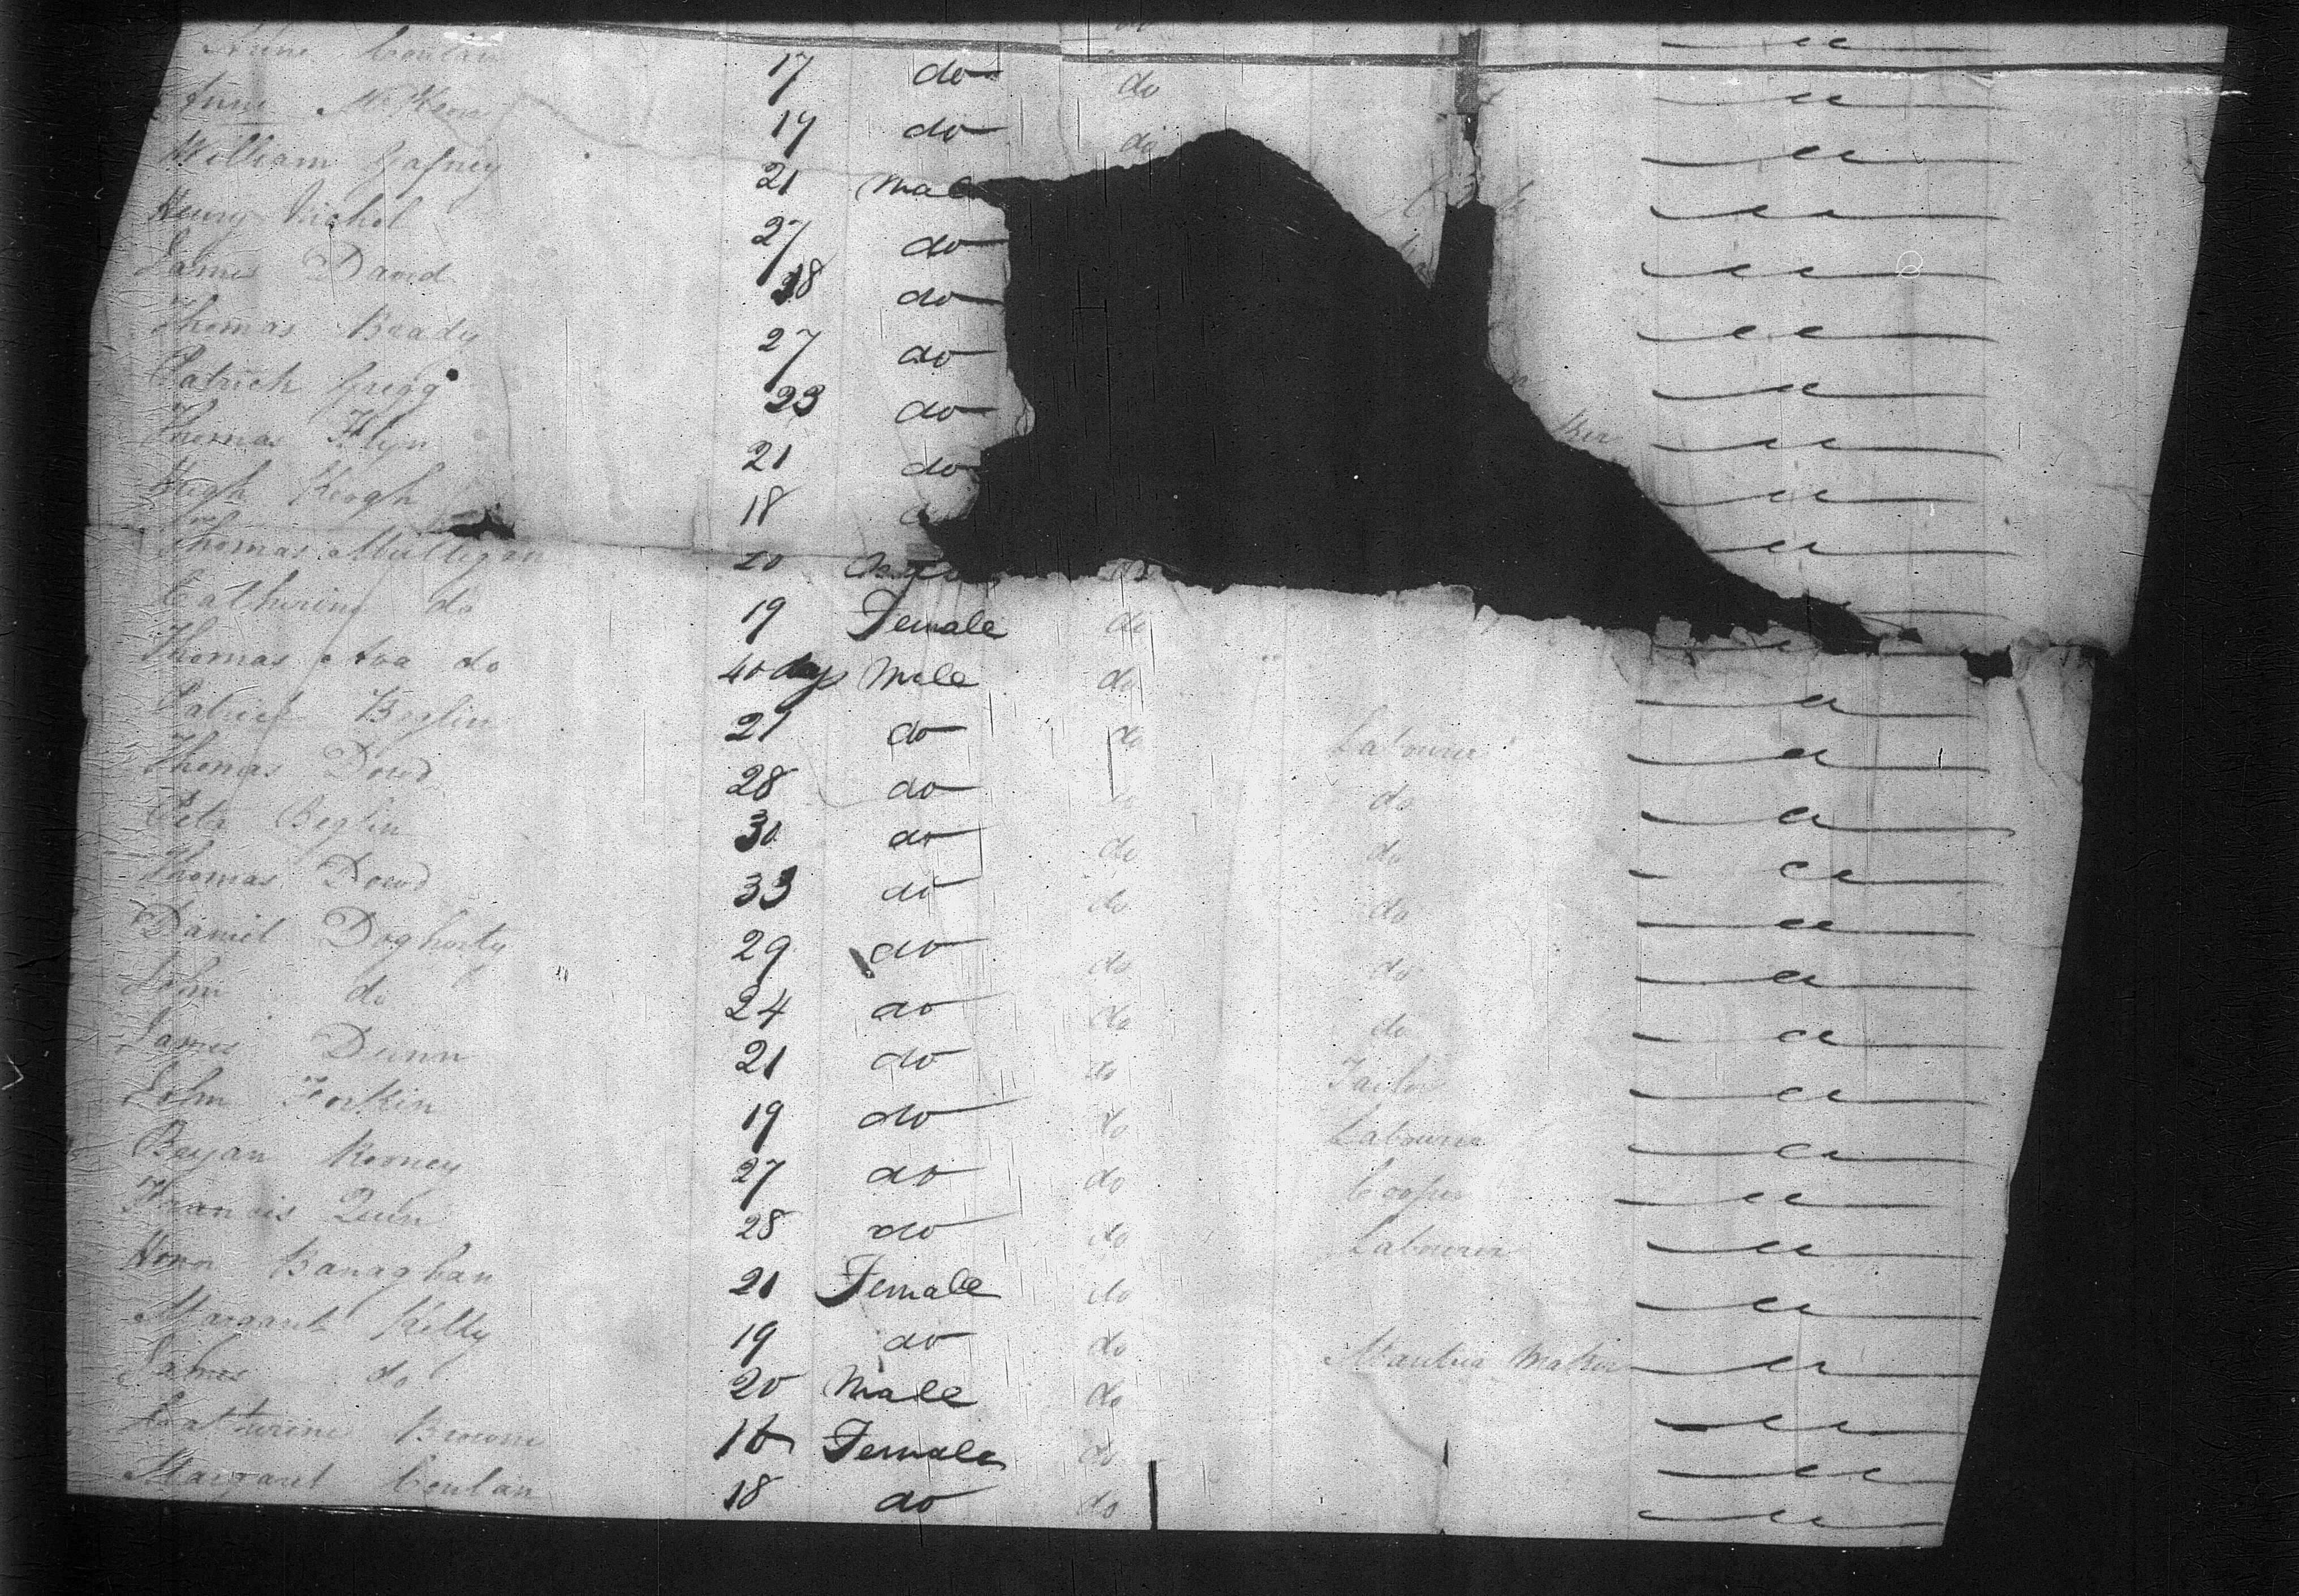 Anne Conlan 17 do do "
Anne McKeon 19 do do "
William Gafney 21 Male "
Henry Nichol 27 do "
James David 18 do "
Thomas Brady 27 do "
Patrick Gregg 23 do "
Thomas Flyn 21 do ker "
Hugh Keogh 18 "
Thomas Mulligan 20 "
Catherine do 19 Female do "
Thomas do 40 days Male do "
Patrick Beglin 27 do do Labourer "
Thomas Dowd 28 do do do "
Peter Beglin 30 do do do "
Thomas Dowd 33 do do do "
Daniel Dogherty 29 do do do "
John do 24 do do do "
James Dunn 21 do do Tailor "
John Forkin 19 do do Labourer "
Bryan Rooney 27 do do Cooper "
Francis Quin 28 do do Labourer "
Honor Banaghan 21 Female do "
Margaret Kelly 19 do do Mantua Maker "
James do 20 Male do "
Catherine Browne Female do "
Margaret Conlan 18 do do "